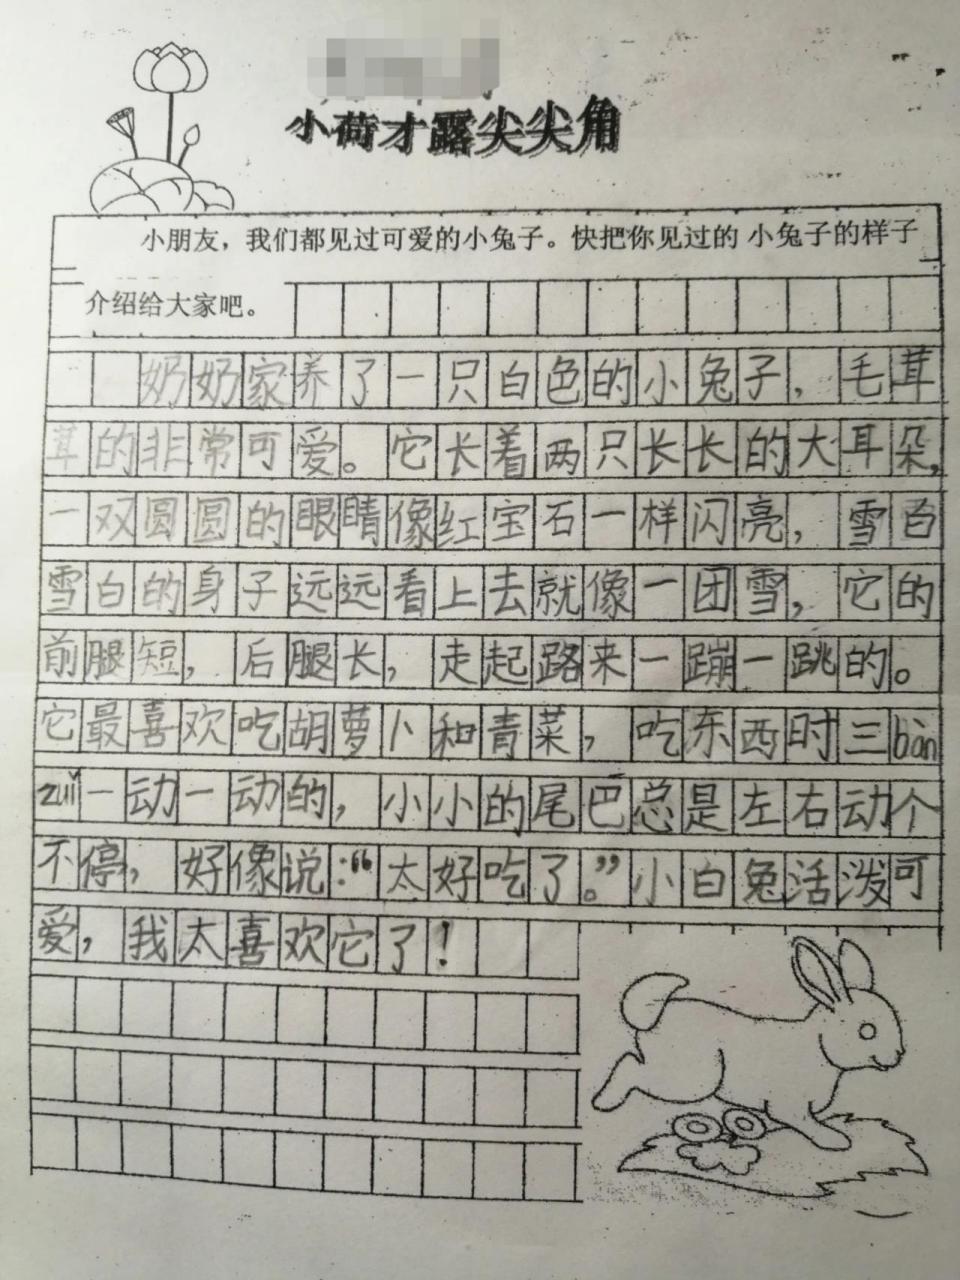 小荷才露尖尖角
小朋友，我们都见过可爱的小兔子。快把你见过的 小兔子的样子
介绍给大家吧。
奶奶家养了一只白色的小兔子，毛茸
茸的非常可爱。它长着两只长长的大耳朵，
一双圆圆的眼睛像红宝石一样闪亮，雪白
雪白的身子远远看上去就像一团雪，它的
前腿短，后腿长，走起路来一蹦一跳的。
它最喜欢吃胡萝卜和青菜，吃东西时三bàn
zuǐ一动一动的，小小的尾巴总是左右动个
不停，好像说：“太好吃了。”小白兔活泼可
爱，我太喜欢它了！